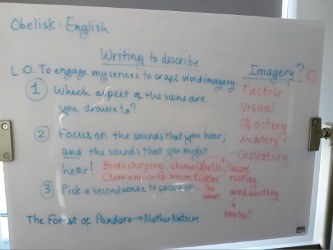 Obelisk - English
Writing to describe
L O. To engage my senses to craft vivid imagery.
Imagery?
① Which aspect of the scene are you drawn to?
Tactile
Visual
Olfactory
Auditory
Gustatory
② Focus on the sounds that you hear;
and the sounds that you might
hear! Birds chirping
leaves
Clear and crisp
rustling
③ Pick a second sense to focus on.
The
wind whistling
The Forest of Pandora → Mother Nature